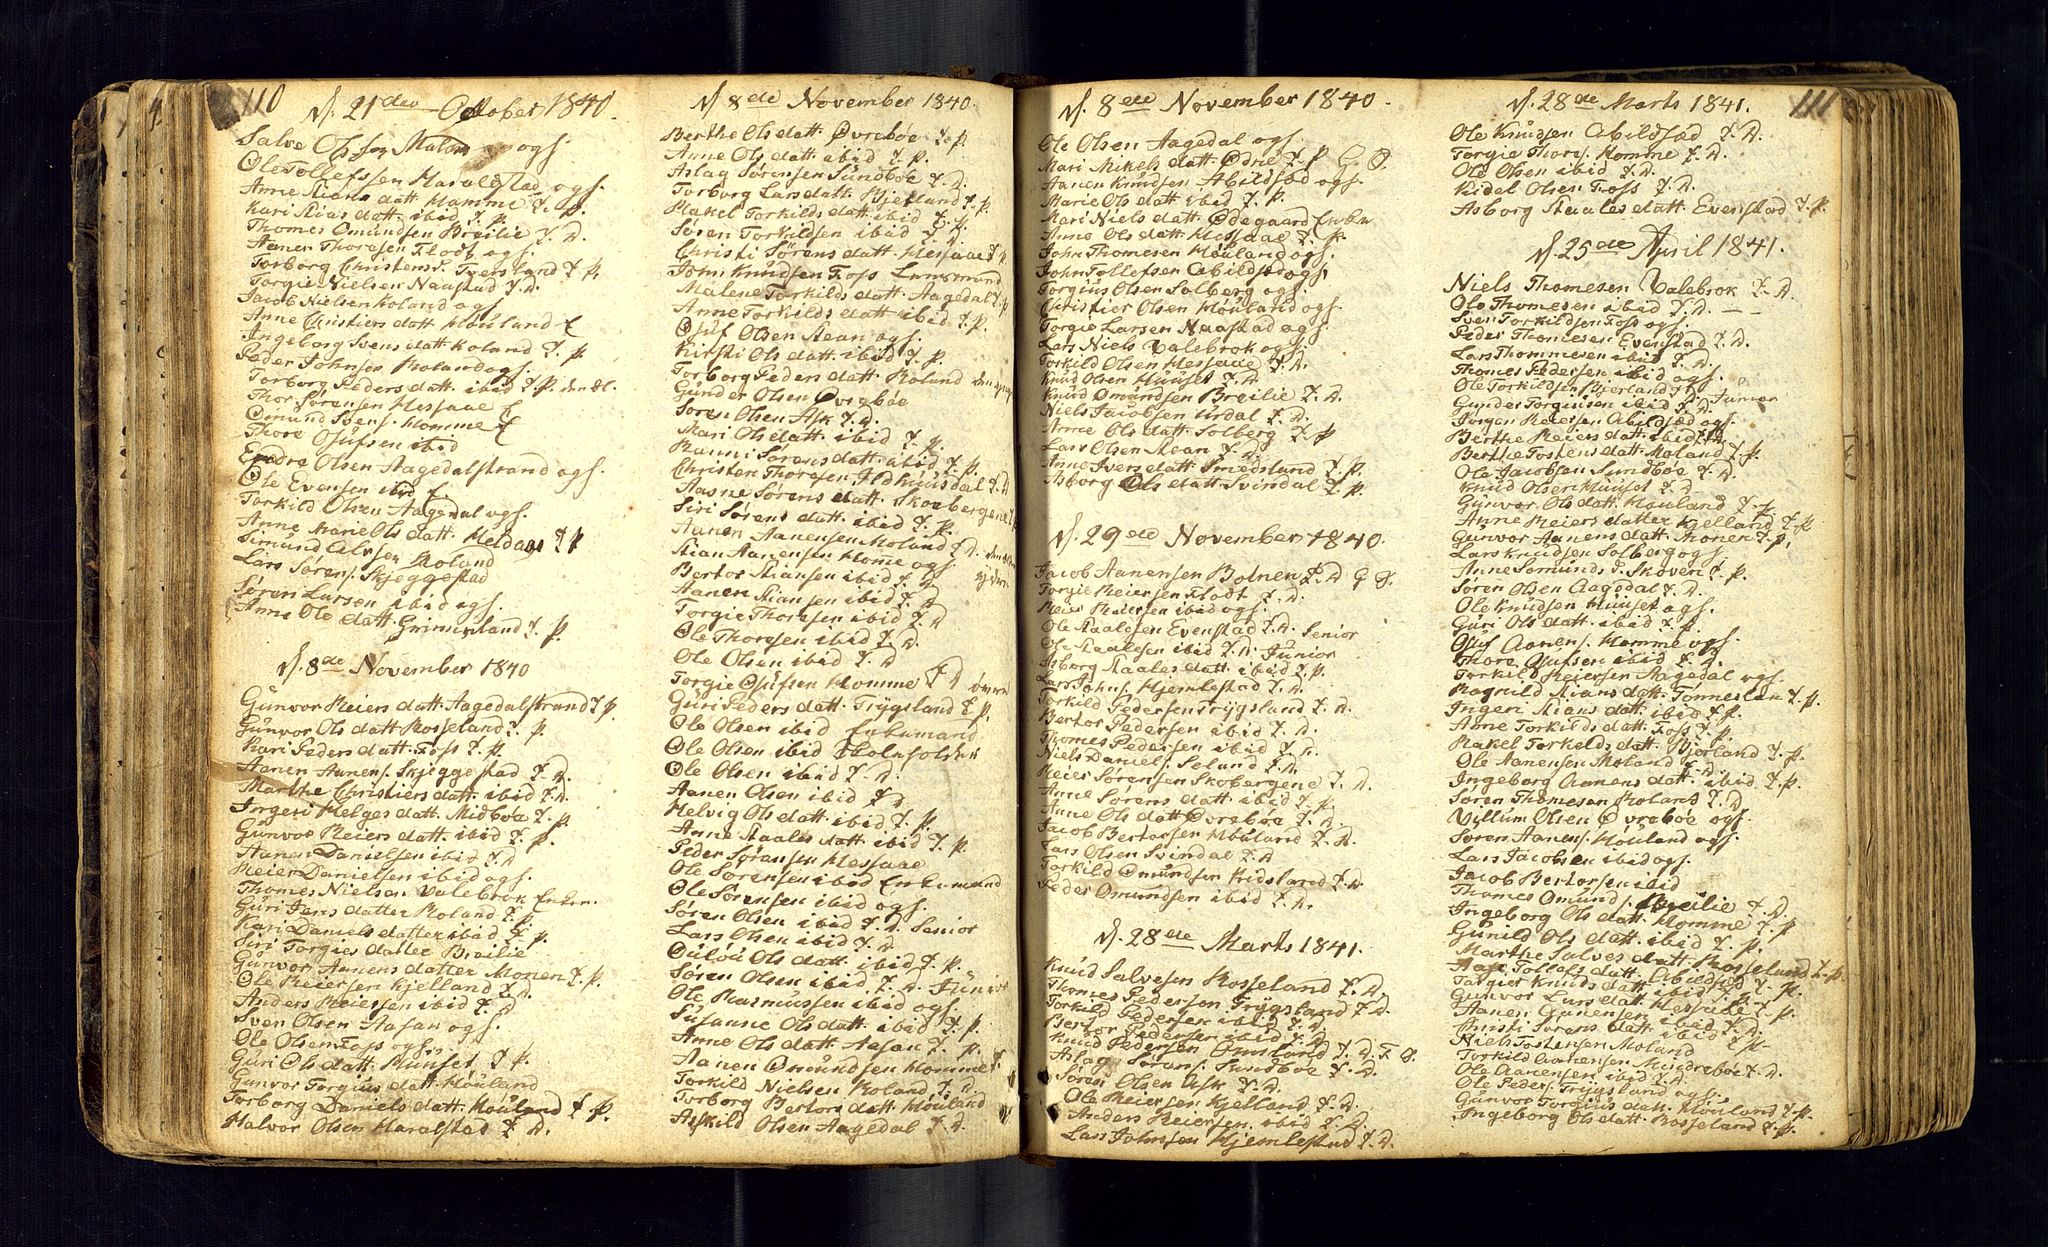 110
d. 21 den October 1840.
Salve Olssen ogs.
Ole Tollefssen Haralstad ogs.
Anne Stians datt. Homme f. P.
Kari Stias datt. ibid f. p.
Thomes Omundsen Breilie f. D.
Aanen Thorasen Flodt ogs.
Torborg Christens. Tversland f. P.
Torgie Nielsen Naustad f. D.
Jacob Nielsen Roland ogs.
Anne Christiers datt. Houland E
Ingeborg Svens datt. Roland f. P.
Peder Johnsen Roland ogs.
Torborg Peders datt. ibid f. P. den æl.
Thor Sørensen Hessaae E
Omund Svens. Homme E
Thore Osufsen ibid
Endre Olsen Aagedalstrand ogs.
Ole Evensen ibid E
Torkild Olsen Aagedal ogs.
Anne Marie Ols datt. Heldaas f. P
Simund Alvsen Roland
Lars Sørens. Skjeggestad
Søren Larsen ibid ogs.
Anne Ole datt. Grimenland f. P.
d. 8de November 1840
Gunvor Reiers datt. Aagedalstrand f. P.
Gunvor Ols datt. Rosseland f. P.
Kari Peders datt. Foss f. P.
Aanen Aanens. Skjeggestad f. D.
Marthe Christiers datt. ibid f. D.
Ingeri Helges datt. Midboe f. P.
Gunvor Reiers datt. ibid f. P.
Aanen Danielsen ibid f. D
Reier Danielsen ibid ogs.
Thomes Nielsen Valebrok Enkem.
Guri Jens datter Roland f. P.
Kari Daniels datter ibid f. P.
Siri Torgies datter Breilie
Gunvor Aanens datter Monen f. P.
Ole Reiersen Kjelland f. D.
Anders Reiersen ibid f. D
Sven Olsen Aasan ogs.
Ole Olsen Foss ogs.
Guri Ols datt. Huuset f. P.
Gunvor Torgius datt. Houland
Torborg Daniels datt. Houland f. P.
Halvor Olsen Haralstad f. D.
d. 8de November 1840.
Berthe Ols datt. Øvrebøe f. P.
Anne Ols datt. ibid f. P.
Aslag Sørensen Sundboe f. D.
Torborg Lars datt. Bjelland f. P.
Rakel Torkilds datt. ibid f. P.
Søren Torkildsen ibid f. D.
Christi Sørens datt. Hessaae f. P.
John Knudsen Foss
Malene Torkilds datt. Aagedal f. P.
Anne Torkilds datt. ibid f. P.
Osuf Olsen Stean ogs.
Kirsti Ols datt. ibid f. P.
Torborg Peders datt. Roland den yngr
Gunder Olsen Øvrebøe
Søren Olsen Ask f. D.
Mari Ols datt. ibid f. P.
Ranni Sørens datt. ibid f. P.
Christen Thorasen Ildhuusdal f. D.
Aasne Sørens datt. Skoebergene f. P.
Siri Sørens datt. ibid f. P.
Aanen Aanensen Moland f. D. den
Stian Aanensen Homme ogs.
Bertor Stiansen ibid f. D
Aanen Stiansen ibid f. D
Torgie Thorasen ibid f. D
Ole Thorasen ibid f. D.
Ole Olsen ibid f. D
Torgie Osufsen Homme f. D
Guri Peders datt. Trygsland f. P.
Ole Olsen ibid Enkemand
Ole Olsen ibid Skoleholder
Ole Olsen ibid f. D.
Aanen Olsen ibid f. D
Helvig Ols datt. ibid f. P.
Anne Staales datt. ibid f. P.
Peder Sørensen Hessaae
Ole Sørensen ibid Enkemand
Ole Sørensen ibid ogs.
Søren Olsen ibid f. D. Senior
Lars Olsen ibid f. D
Oulou Ols datt. ibid f. P.
Søren Olsen ibid f. D. Junior
Ole Rasmussen ibid ogs.
Susanne Ols datt. ibid f. P.
Anne Ols datt. Aasan f. P.
Aanen Omundsen Homme f. D
Torkild Nielsen Roland f. D
Torborg Bertors datt. Houland
Asskild Olsen Aagedal f. D.
d. 8de November 1840.
Ole Olsen Aagedal ogs.
Mari Mikels datt. Odne f. P G. O.
Aanen Knudsen Abildsød ogs.
Marie Ols datt. ibid f. P.
Mari Niels datt. Ødegaard Enke
Anne Ols datt. Hessaae f. P.
John Thomesen Houland ogs.
John Tollefsen Abildsød ogs.
Torgius Olsen Solberg ogs.
Christier Olsen Houland ogs.
Torgie Larsen Naastad ogs.
Lars Niels. Valebrok ogs.
Torkild Olsen Hessaae f. D.
Knud Olsen Huuset f. D.
Knud Omundsen Breilie f. D.
Niels Jacobsen Urdal f. D.
Anne Ols datt. Solberg f. P
Lars Olsen Stean f. D
Anne Ivers datt. Smedsland f. P.
Asborg Ols datt. Svindal f. P.
d. 29de November 1840.
Jacob Aanensen Bolnen f. D G. O.
Torgie Reiersen Flodt f. D.
Reier Reiersen ibid ogs.
Ole Staalesen Evenstad f. D. Senior
Ole Staalesen ibid f. D. Junior
Asborg Staales datt. ibid f. P.
Lars Johns. Hjemlestad f. D.
Torkild Pedersen Trygsland f. D.
Bertor Pedersen ibid f. D.
Thomes Pedersen ibid f. D.
Niels Daniels. Foland f. D.
Reier Sørensen Skobergene f. D.
Anne Sørens datt. ibid f. P.
Anne Ols datt. Øvrebøe f. D.
Jacob Bertorsen Houland f. D.
Lars Olsen Svindal f. D
Torkild Omundsen Kidsland f. D.
Peder Omundsen ibid f. D.
d. 28de Marts 1841.
Knud Salvesen Rosseland f. D.
Thomes Pedersen Trygsland f. D
Torkild Pedersen ibid f. D.
Bertor Pedersen ibid f. D
Knud Pedersen Omsland f. D. F. O.
Aslag Sørens. Sundboe f. D.
Søren Olsen Ask f. D.
Ole Reiersen Kjelland f. D.
Anders Reiersen ibid f. D.
Lars Johnsen Hjemlestad f. D.
111
d. 28de Marts 1841.
Ole Knudsen Abildsød f. D.
Torgie Thors. Homme f. D.
Ole Olsen ibid f. D.
Kidel Olsen Foss f. D.
Asborg Staales datt. Evenstad f. P.
d. 25de April 1841.
Niels Thomesen Valebrok f. D.
Ole Thomesen ibid f. D.
Sven Torkildsen Foss ogs.
Peder Thomesen Evenstad f. D.
Lars Thommesen ibid f. D.
Thomes Pedersen ibid ogs.
Ole Torkildsen Bjerland f. D. Junior
Gunder Torgiusen ibid f. D.
Jørgen Reiersen Abildsød ogs.
Berthe Reiers datt. ibid f. P.
Berthe Tostens datt. Moland f. P.
Ole Jacobsen Sundboe f. D.
Knud Olsen Huuset f. D
Gunvor Ols datt. Houland f. P.
Anne Reiers datter Kjelland f. P
Gunvor Aanens datt. Monen f. P.
Lars Knudsen Solberg ogs.
Anne Somunds d. Skoven f. P.
Søren Olsen Aagedal f. D.
Ole Knudsen Huuset ogs.
Guri Ols datt. ibid f. P.
Osuf Aanens. Homme ogs.
Thore Osufsen ibid f. D.
Torkild Reiersen Aagedal ogs.
Ragnild Stians datt. Tonnesland f. P.
Ingeri Stians datt. ibid f. P.
Anne Torkilds datt. Foss f. P.
Rakel Torkelds datt. Bjerland f. P.
Ole Aanensen Moland f. D
Ingeborg Aanens datt. ibid f. P.
Søren Thomesen Roland f. D
Villum Olsen Øvreboe ogs.
Søren Aanens. Houland ogs.
Lars Jacobsen ibid ogs.
Jacob Bertorsen ibid
Thomes Omunds. Breilie f. D.
Ingeborg Ols datt. Homme f. P
Gunild Ols datt. ibid f. P.
Marthe Salves datt. Rosseland f. P.
Tollefs datt. Abildsød f. P.
Torgier Knuds datt. ibid f. P.
Gunvor Lars datt. Hessaae f. P
Aanen Aanensen ibid f. D
Christi Sørens datt. ibid f. P.
Niels Tostensen Moland
Torkild Aanensen Mindreboe f. D.
Ole Aanensen ibid f. D.
Ole Peders. Trygsland ogs.
Gunvor Torgius datt. Houland f. P.
Ingeborg Ols datt. Rosseland f. P.